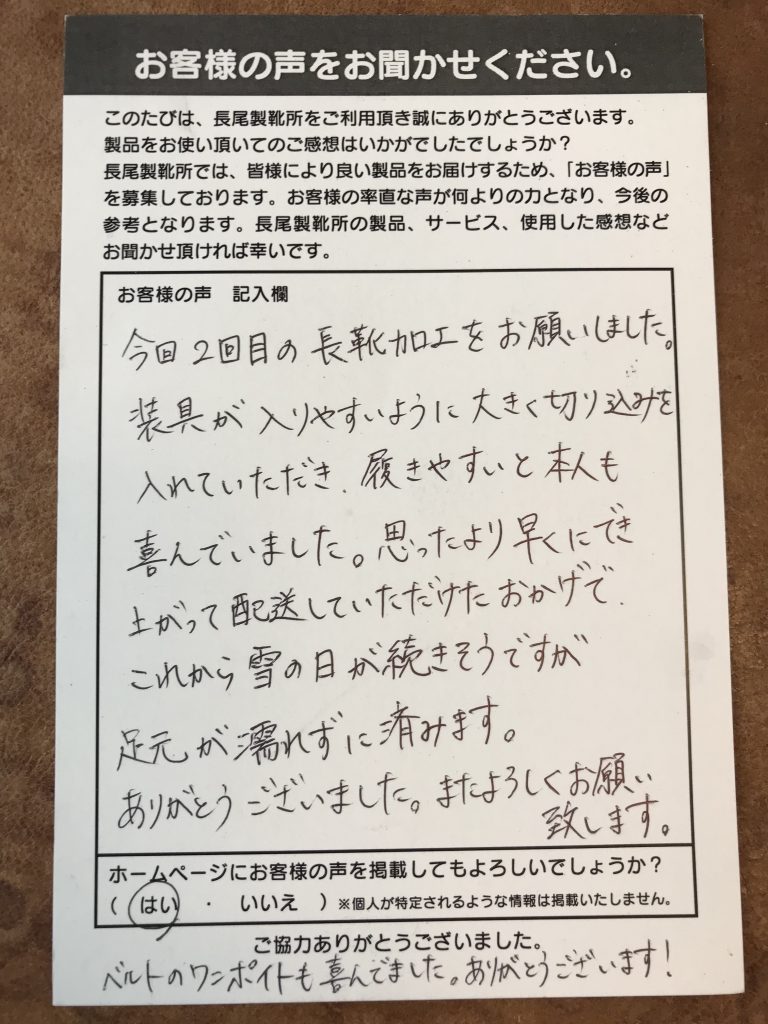 お客様の声をお聞かせください。
このたびは、長尾製靴所をご利用頂き誠にありがとうございます。
製品をお使い頂いてのご感想はいかがでしたでしょうか？
長尾製靴所では、皆様により良い製品をお届けするため、「お客様の声」
を募集しております。お客様の率直な声が何よりの力となり、今後の
参考となります。長尾製靴所の製品、サービス、使用した感想など
お聞かせ頂ければ幸いです。
お客様の声　記入欄
今回2回目の長靴加工をお願いしました。
装具が入りやすいように大きく切り込みを
入れていただき、履きやすいと本人も
喜んでいました。思ったより早くにでき
上がって配送していただけたおかげで、
これから雪の日が続きそうですが
足元が濡れずに済みます。
ありがとうございました。またよろしくお願い
致します。
ホームページにお客様の声を掲載してもよろしいでしょうか？
（　はい　・　いいえ　）※個人が特定されるような情報は掲載いたしません。
ご協力ありがとうございました。
ベルトのワンポイトも喜んでました。ありがとうございます！